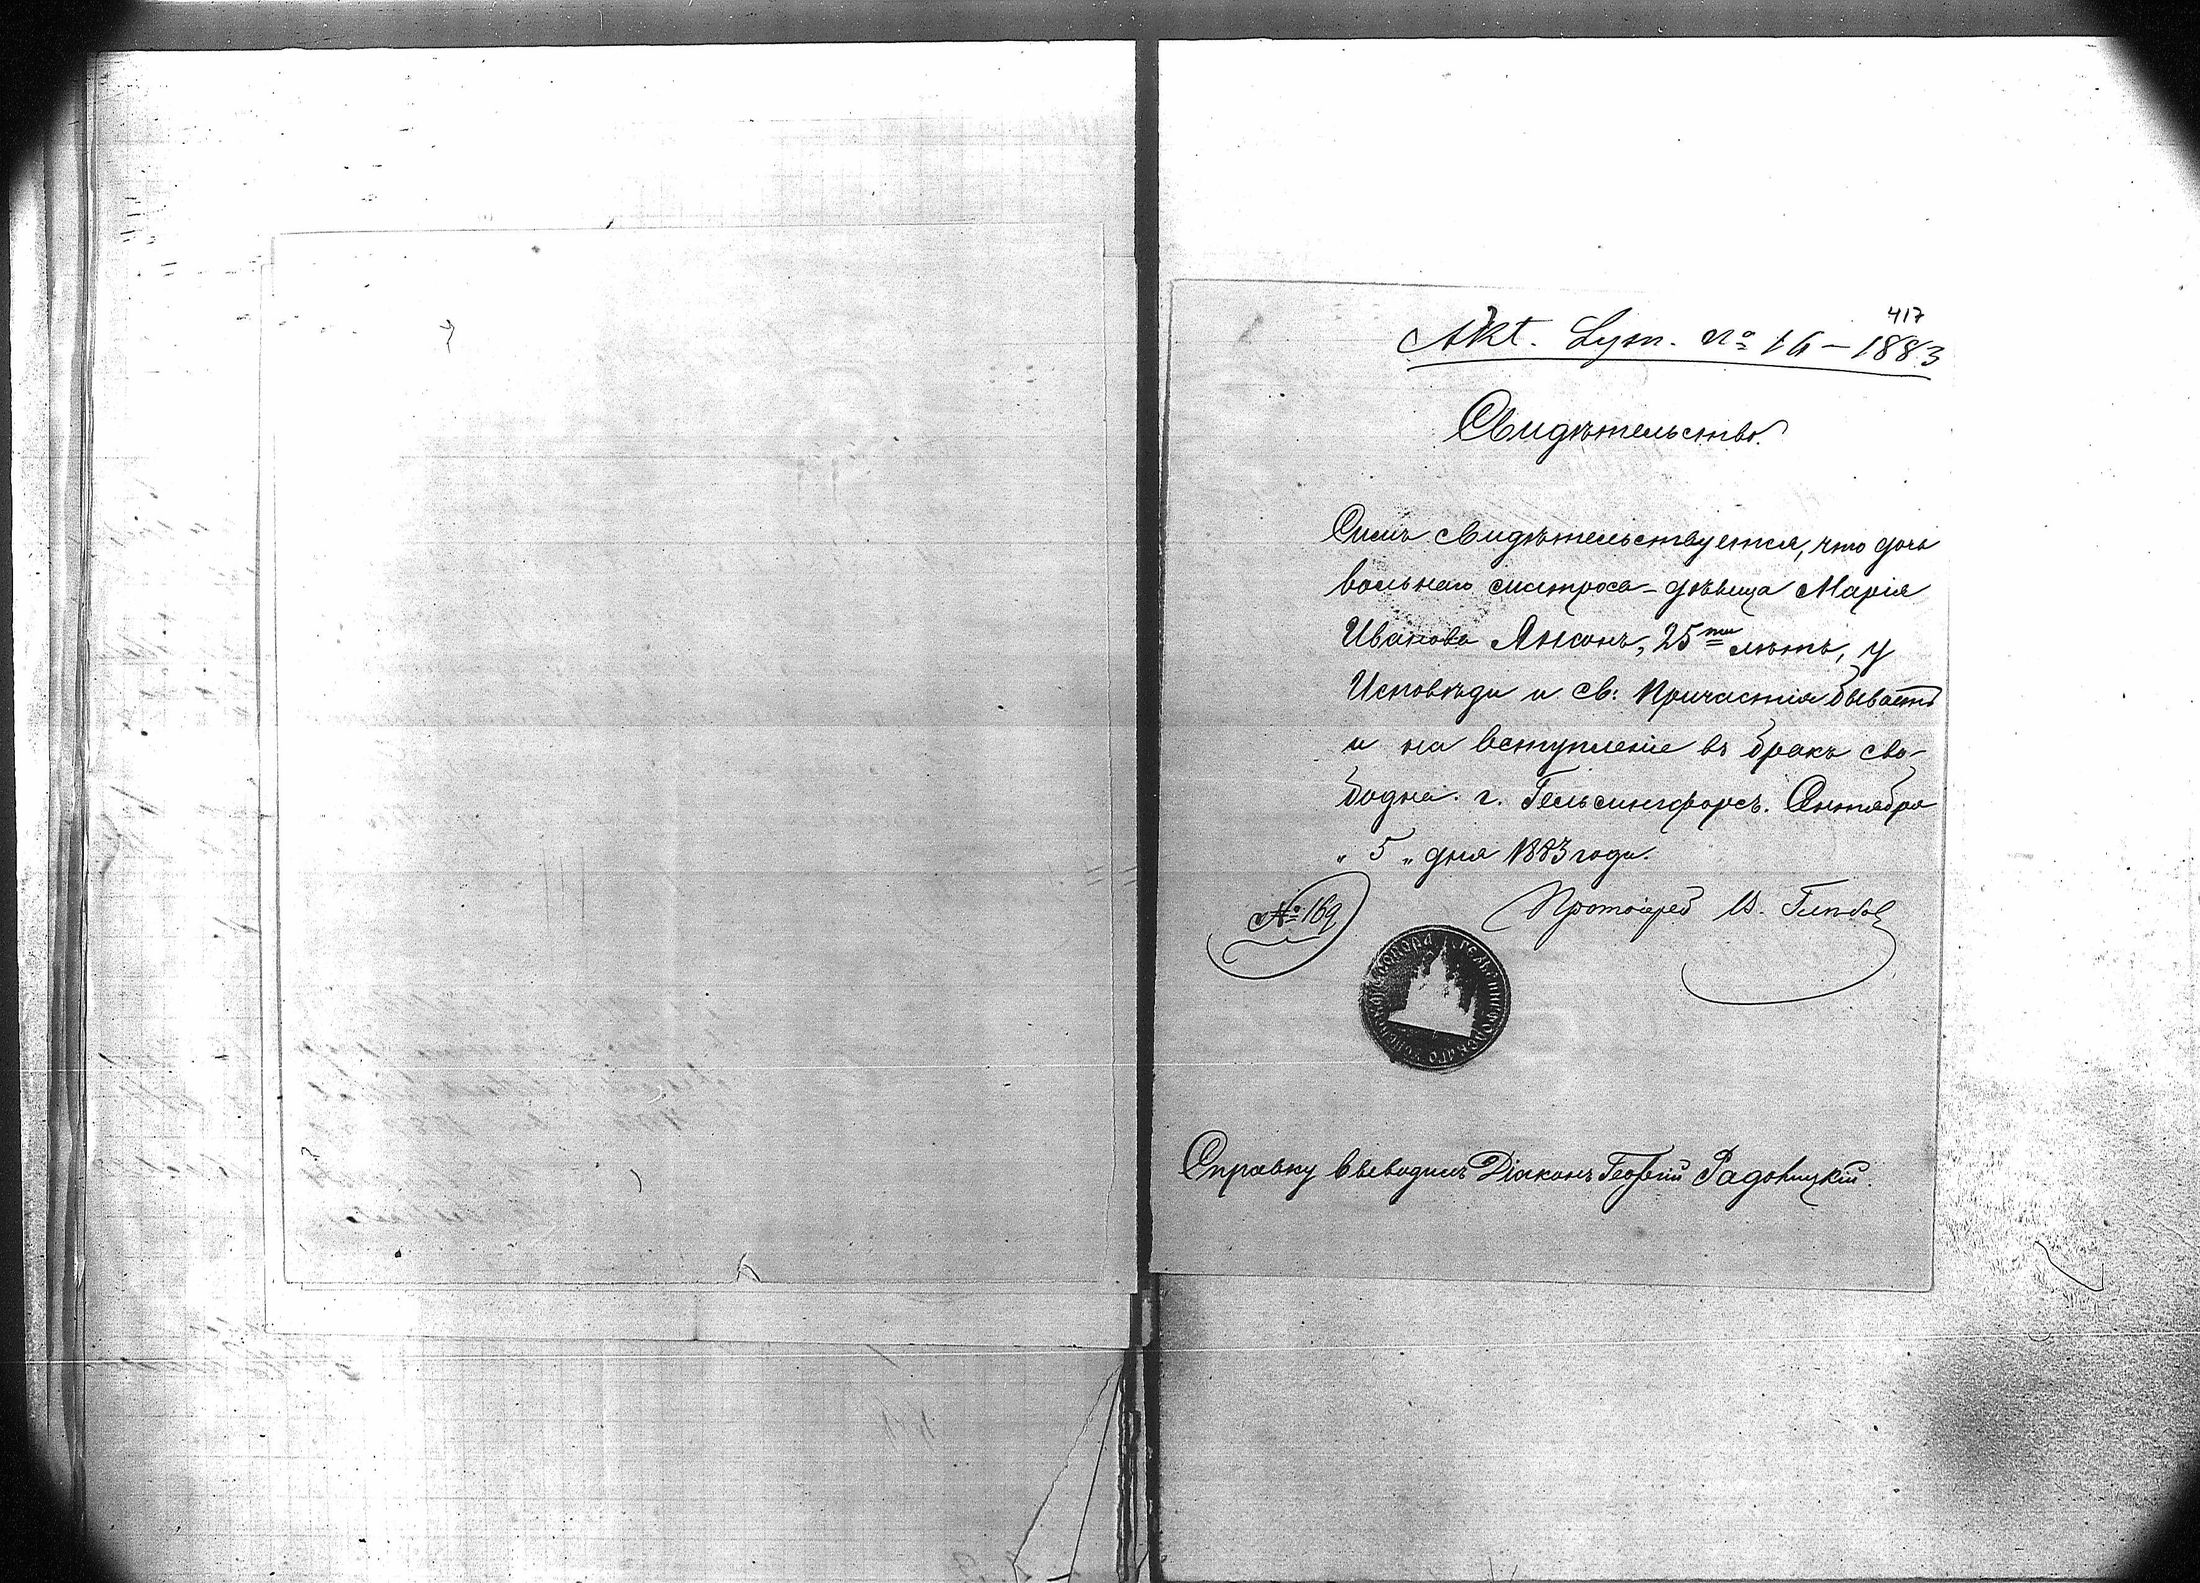 417
Akt. Lym. No 16 – 1883
Свидѣтельство.
Симъ свидѣтельствуется, что дочь
вольнаго матроса – дѣвица Марія
Иванова Янсонъ, 25ти лѣтъ, у
Исповѣди и св: Причастія бываетъ
и на вступленіе въ бракъ сво-
бодна. г. Гельсингфорсъ. Октября
„ 5 „ дня 1883 года.
№ 169 Протоіерей Н. Глѣбов
Гельсингфорскаго собора
Справку выводилъ Діаконъ Георгій Радовицкій.